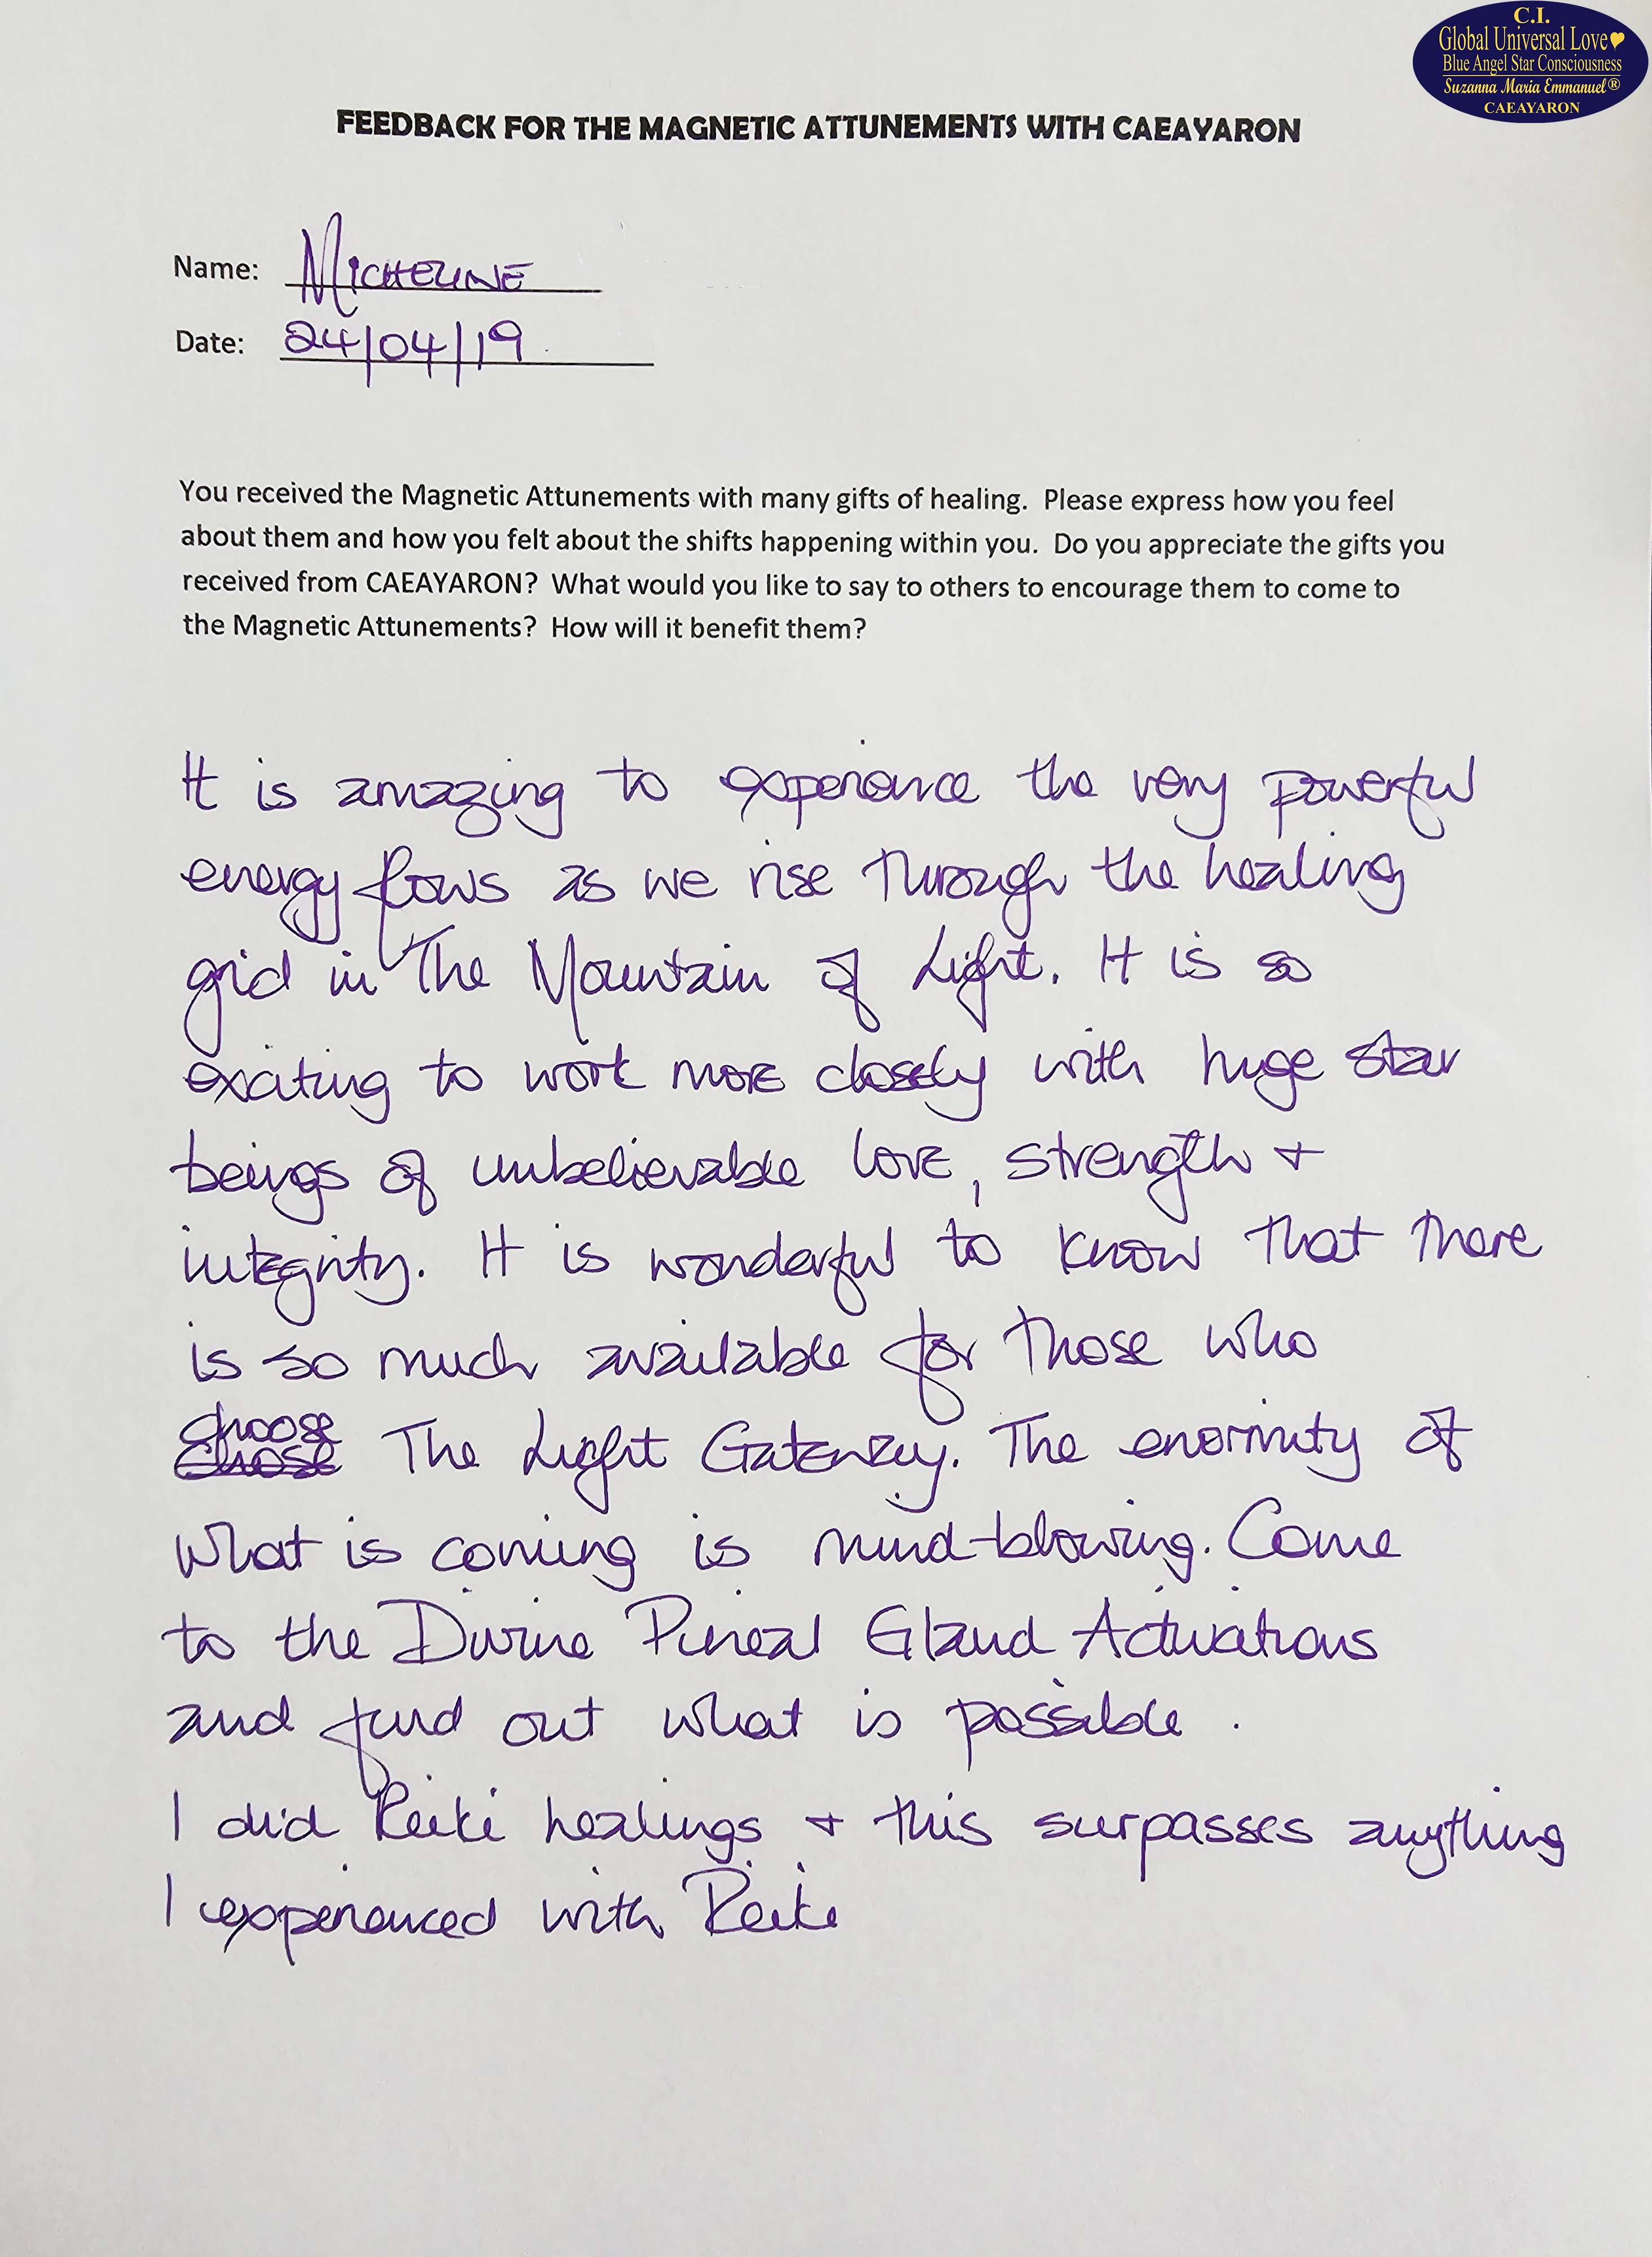 C.I.
Global Universal Love
Blue Angel Star Consciousness
Suzanna Maria Emmanuel®
CAEAYARON
FEEDBACK FOR THE MAGNETIC ATTUNEMENTS WITH CAEAYARON
Name: MICHELINE
Date: 24/04/19
You received the Magnetic Attunements with many gifts of healing. Please express how you feel
about them and how you felt about the shifts happening within you. Do you appreciate the gifts you
received from CAEAYARON? What would you like to say to others to encourage them to come to
the Magnetic Attunements? How will it benefit them?
It is amazing to experience the very powerful
energy flows as we rise through the healing
grid in The Mountain of Light. It is so
exciting to work more closely with huge star
beings of unbelievable love, strength +
integrity. It is wonderful to know that there
is so much available for those who
choose
Chose The Light Gateway. The enormity of
what is coming is mind-blowing. Come
to the Divine Pineal Gland Activations
and find out what is possible.
I did Reiki healings + this surpasses anything
I experienced with Reiki